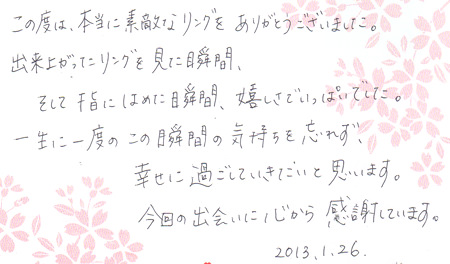 この度は、本当に素敵なリングを ありがとうございました。
出来上がったリングを見た瞬間、
そして指にはめた瞬間、嬉しさでいっぱいでした。
一生に一度の この瞬間の気持ちを忘れず、
幸せに過ごしていきたいと思います。
今回の出会いに心から 感謝しています。
2013.1.26.